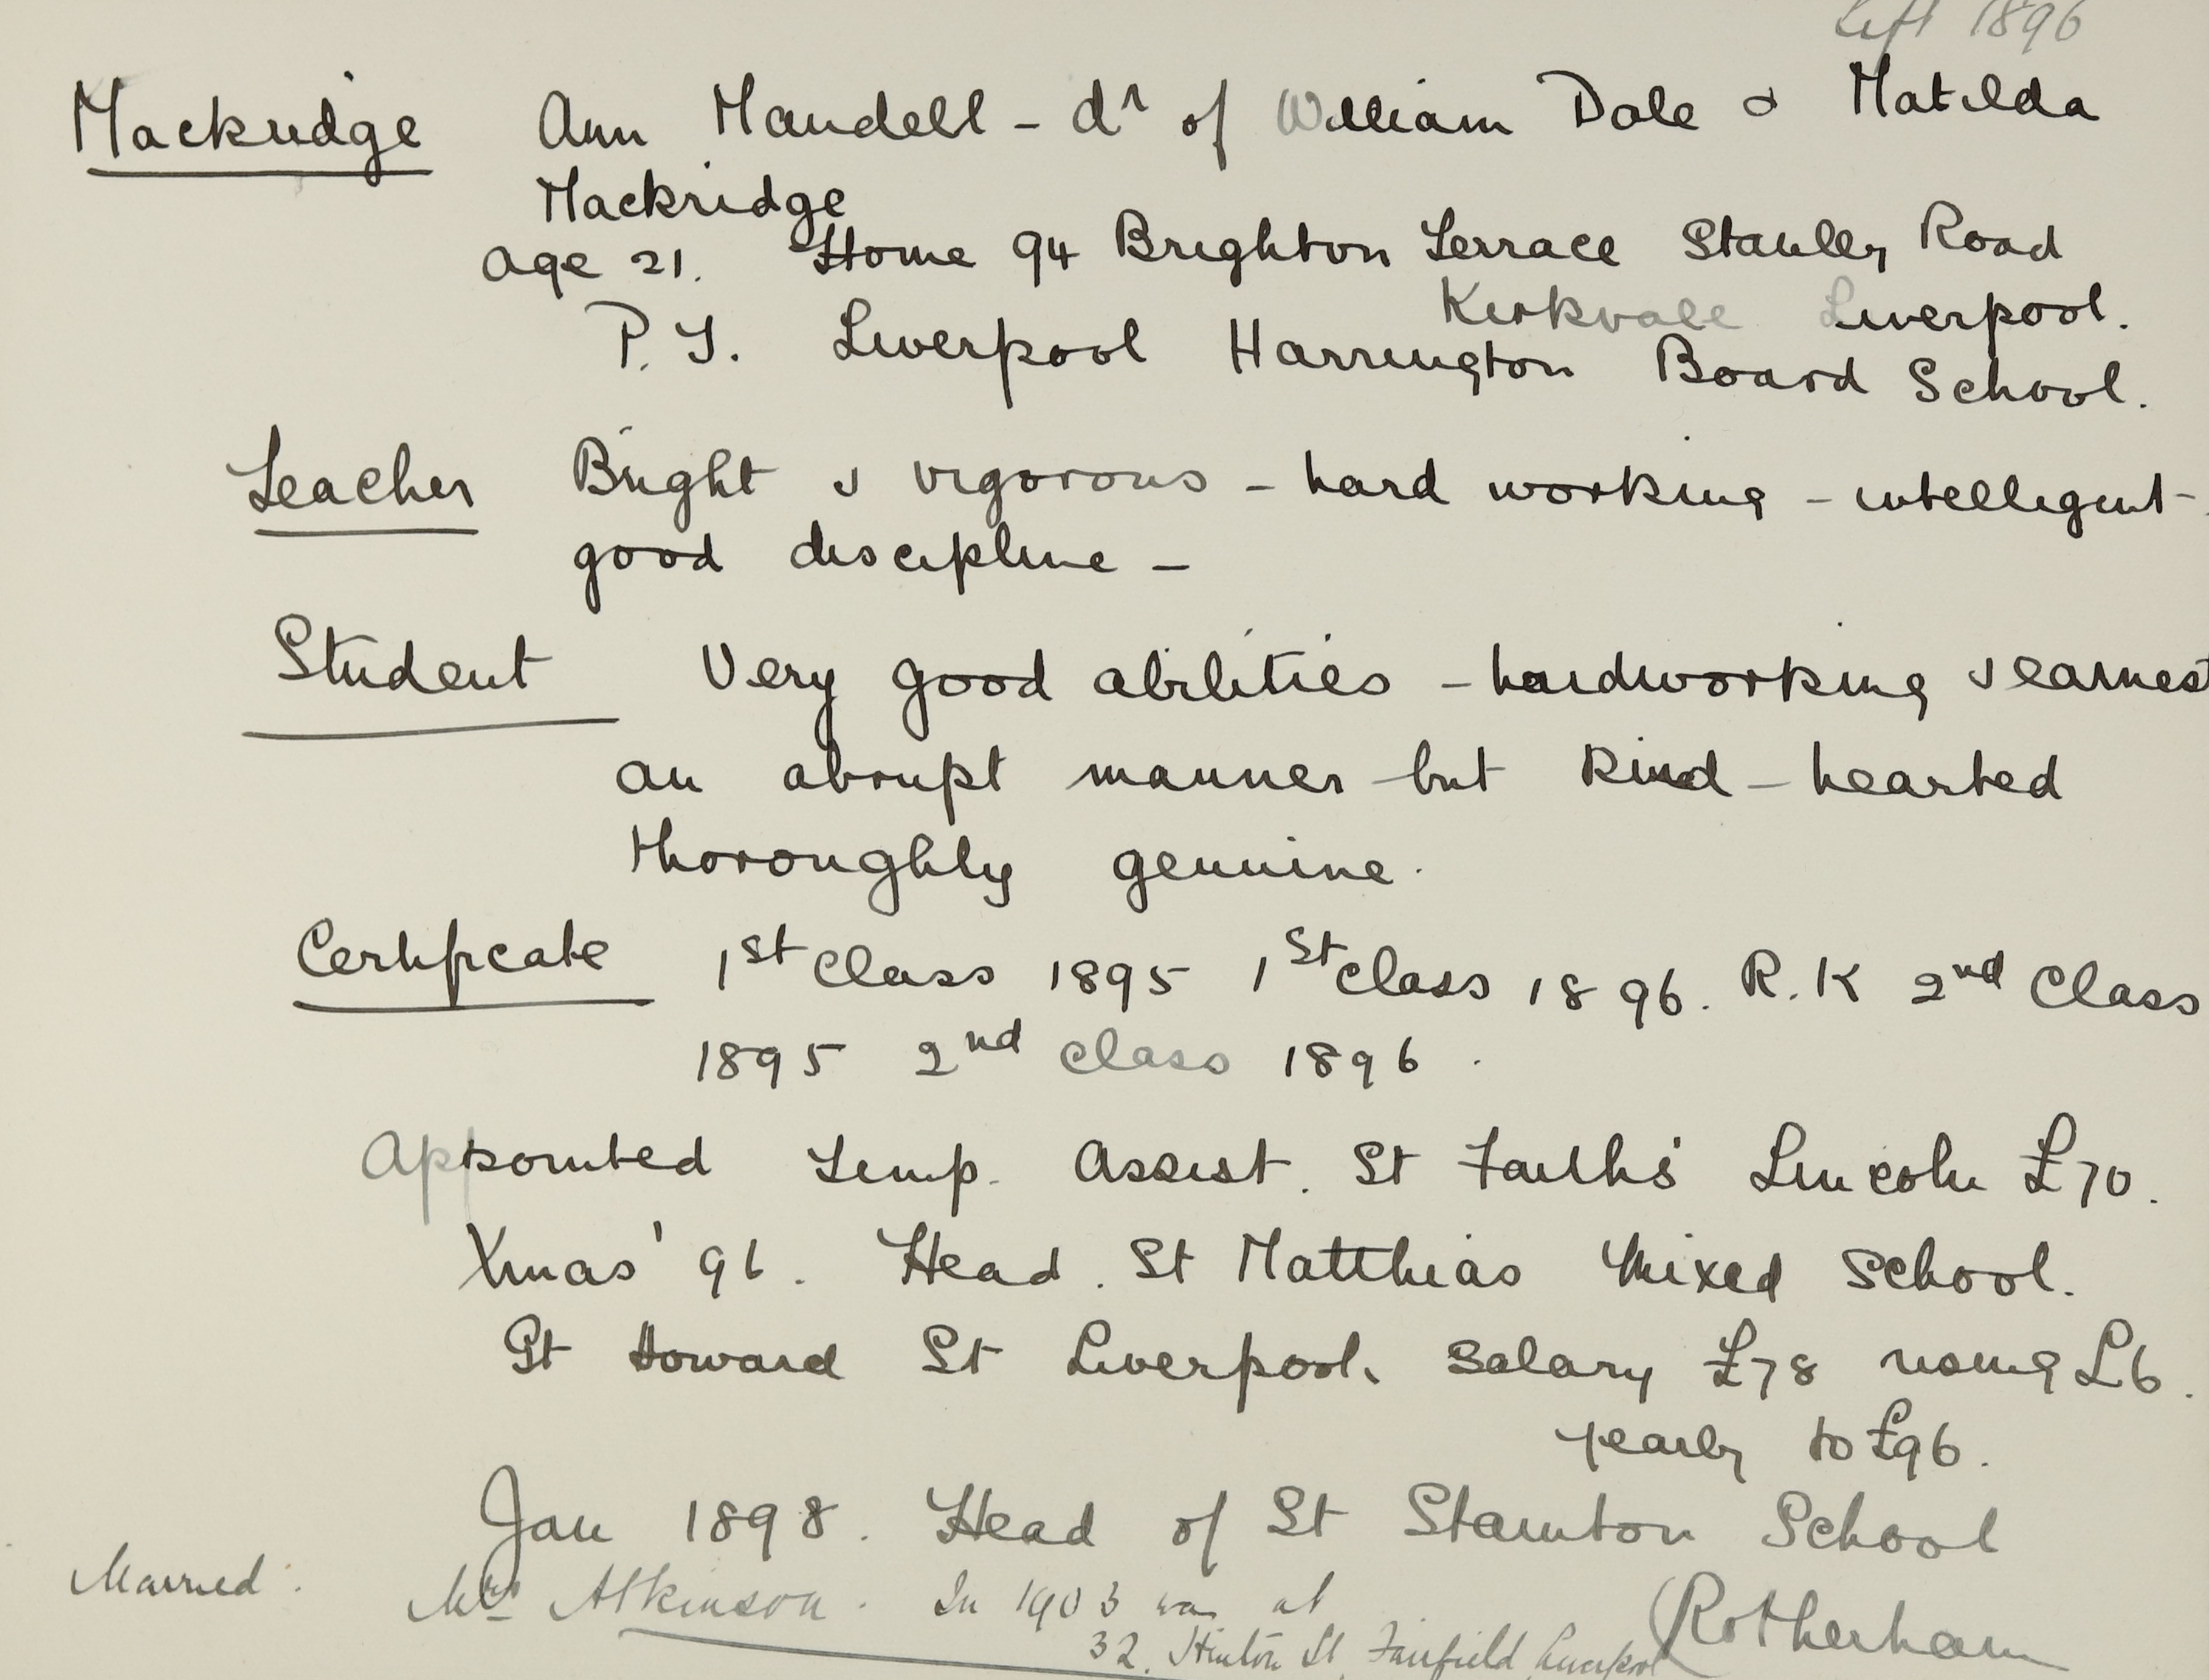 Left 1896
Mackridge Ann Mandell - dr of William Dale & Matilda
Mackridge
age 21. Home 94 Brighton Terrace Stanley Road
Kirkvale Liverpool.
P.T. Liverpool Harrington Board School.
Teacher Bright & vigorous - hard working - intelligent -
good discipline -
Student Very good abilities - hardworking & earnest
an abrupt manner - but kind - hearted
thoroughly genuine.
Certificate 1st Class 1895 1st Class 1896. R.K 2nd Class
1895 2nd class 1896.
Appointed Temp. Assist. St Faith's Lincoln £70.
Xmas '96. Head. St Matthias Mixed School.
Gt Howard St Liverpool. Salary £78 rising £6.
yearly to £96.
Jan 1898. Head of St Stainton School
Rotherham
Married: Mrs Atkinson. In 1903 was at
32. Hinton St, Fairfield Liverpool